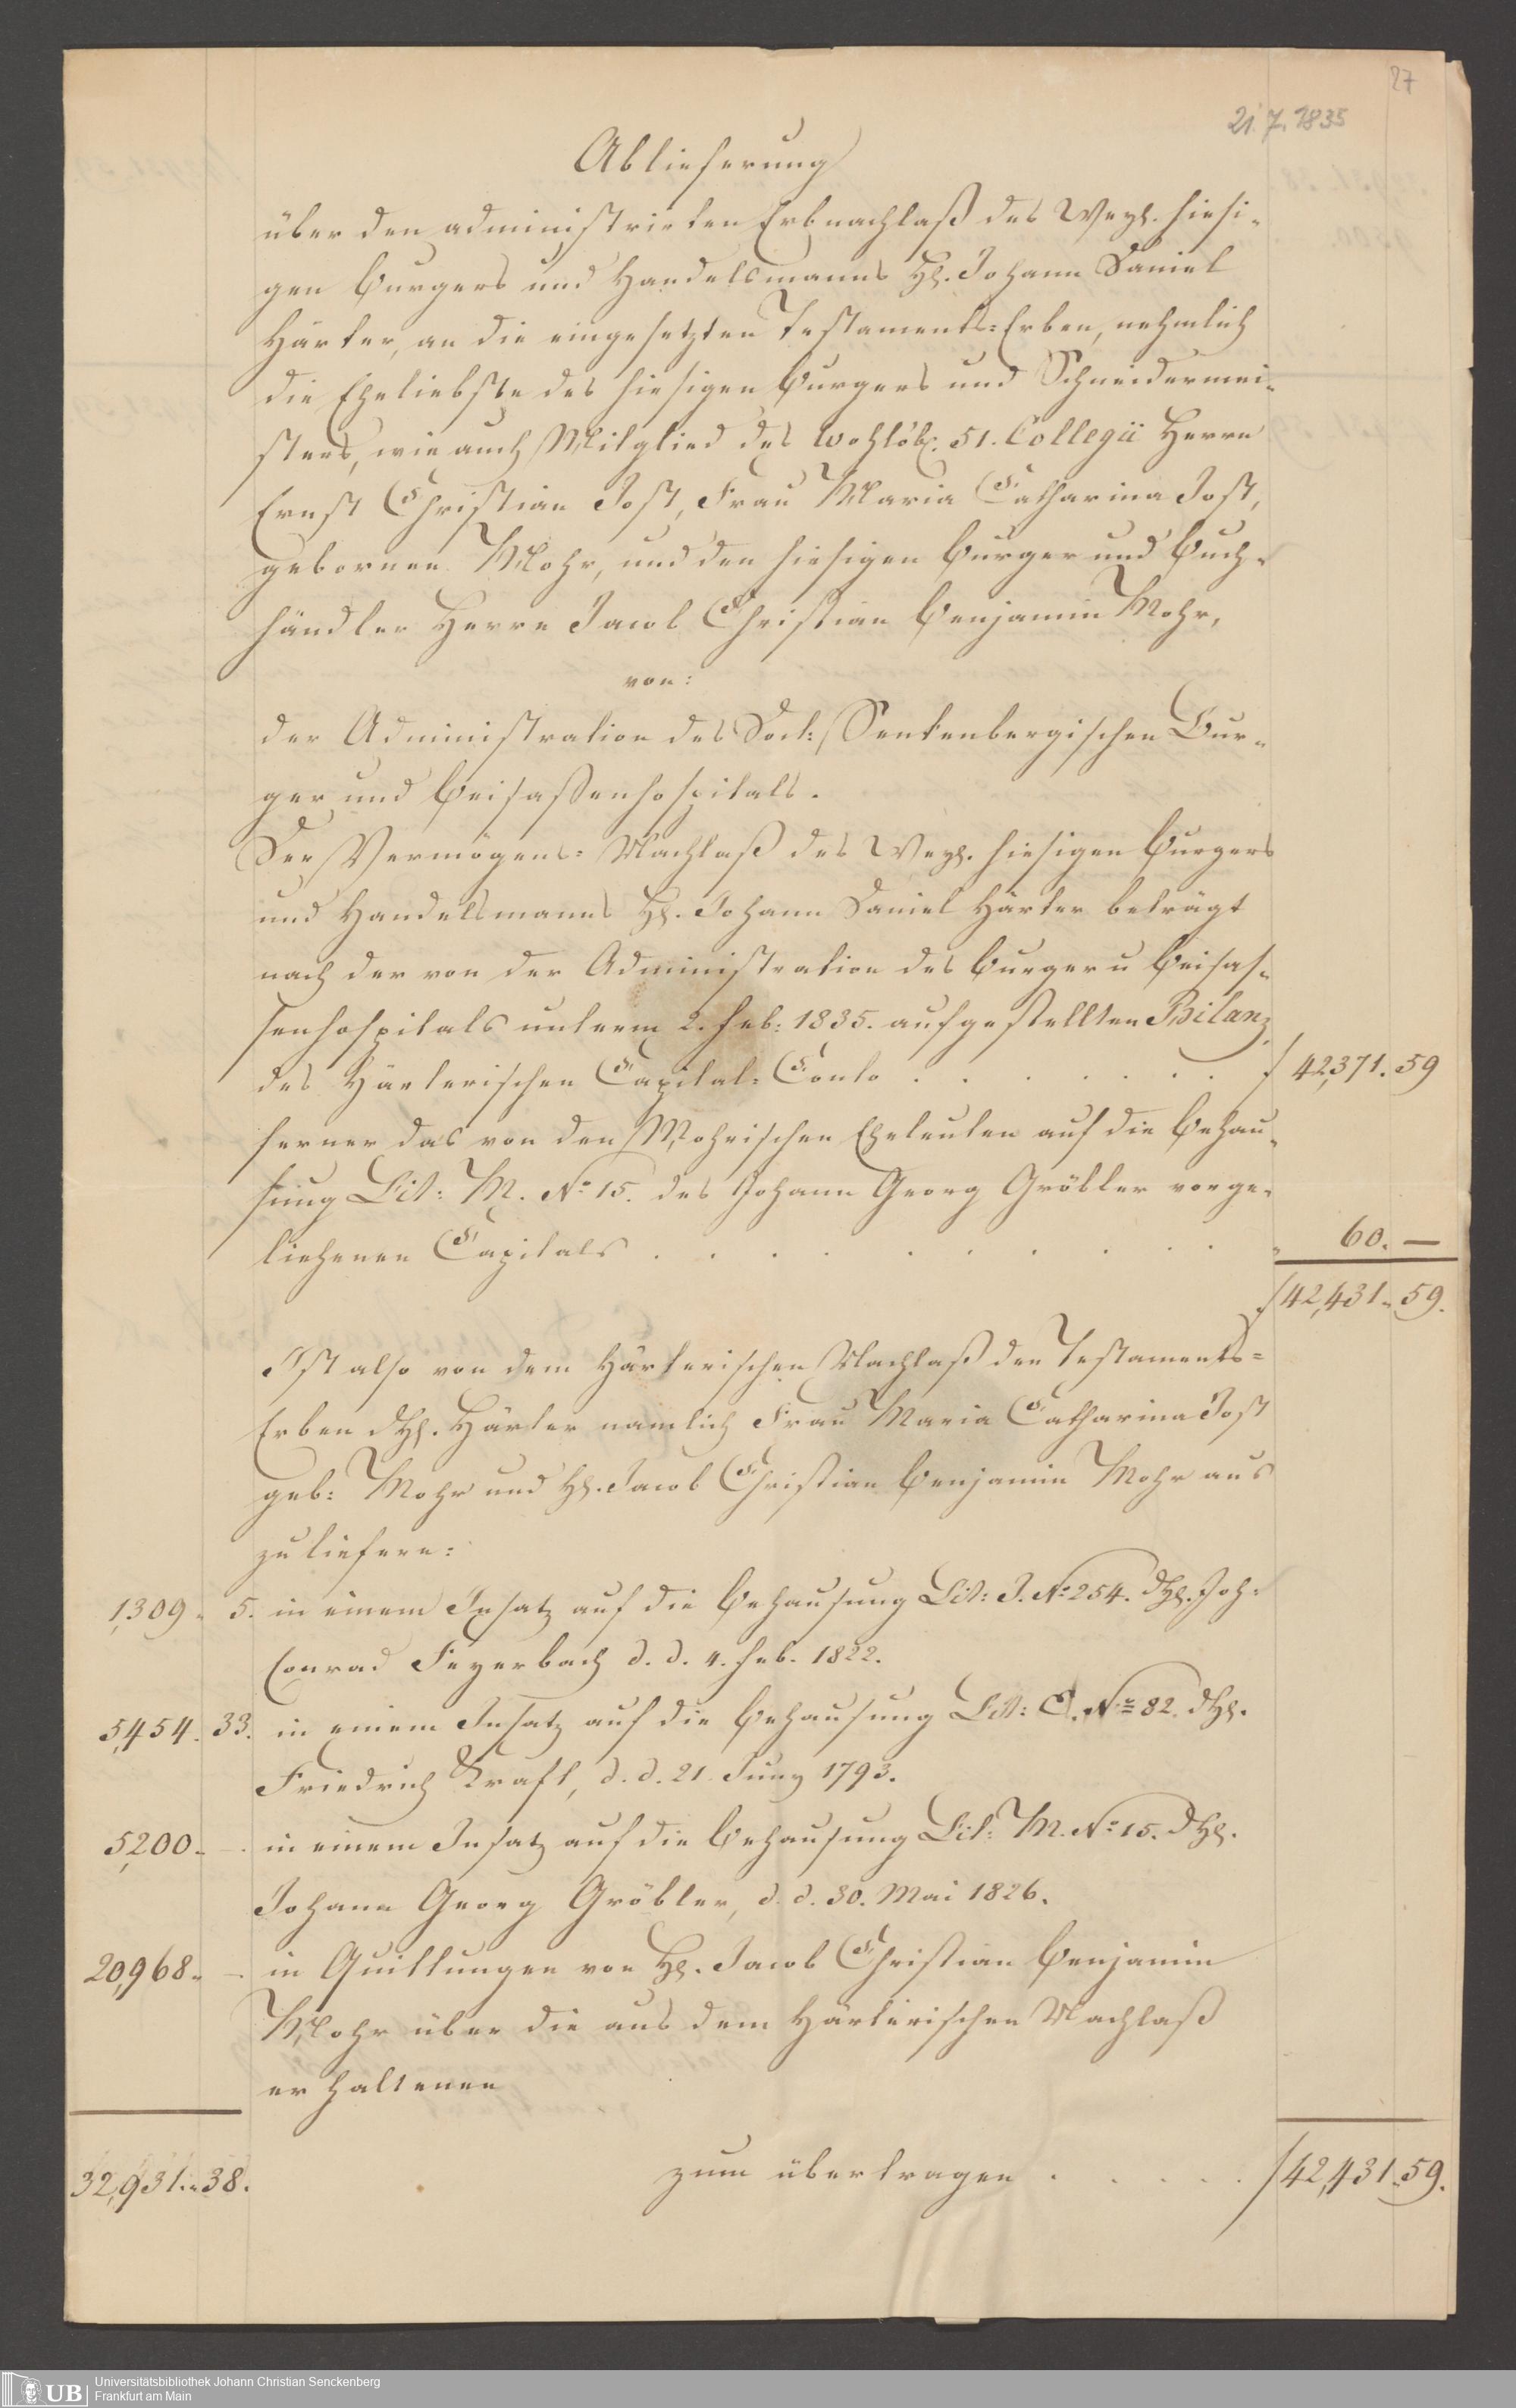 27
21.7.1835
Ablieferung
über den administrirten Erbnachlaß des Weyl. hiesi-
gen Burgers und Handelsmanns H. Johann Daniel
Härter, an die eingesetzten Testaments-Erben, nehmlich
die Eheliebste des hiesigen Burgers und Schneidermei-
sters, wie auch Mitglied des wohllöbl. 51. Collegii Herrn
Ernst Christian Jost, Frau Maria Catharina Jost,
gebornen Mohr, und den hiesigen Burger und Buch-
händler Herrn Jacob Christian Benjamin Mohr,
von:
der Administration des Doct: Senkenbergischen Bur-
ger und Beisaßenhospitals.
Der Vermögens-Nachlaß des Weyl. hiesigen Burgers
und Handelsmanns H. Johann Daniel Härter beträgt
nach der von der Administration des Burger u Beisas-
senhospitals unterm 2. Feb: 1835. aufgestellten Bilanz
des Härterischen Capital-Conto . . . . . . . f 42,371. 59
ferner das von den Mohrischen Eheleuten auf die Behau-
sung Lit: M. No 15. des Johann Georg Gröbler vorge-
liehenen Capitals . . . . . . . . . " 60. —
f 42,431. 59.
Ist also von dem Härterischen Nachlaß den Testaments-
Erben dH. Härter namlich Frau Maria Catharina Jost
geb: Mohr und H. Jacob Christian Benjamin Mohr aus
zuliefern:
1,309. 5. in einem Insatz auf die Behausung Lit: J. No 254. dH. Joh:
Conrad Feyerbach d. d. 4. Feb. 1822.
5,454. 33. in einem Insatz auf die Behausung Lit: No 82. dH.
Friedrich Kraft, d. d. 21. Juny 1793.
5,200. —. in einem Insatz auf die Behausung Lit: M. No 15. dH.
Johann Georg Gröbler, d. d. 30. Mai 1826.
20,968. —. in Quittungen von H. Jacob Christian Benjamin
Mohr über die aus dem Härterischen Nachlaß
erhaltenen
32,931. 38. zum übertragen . . . . . f 42,431. 59.
UB
Universitätsbibliothek Johann Christian Senckenberg
Frankfurt am Main